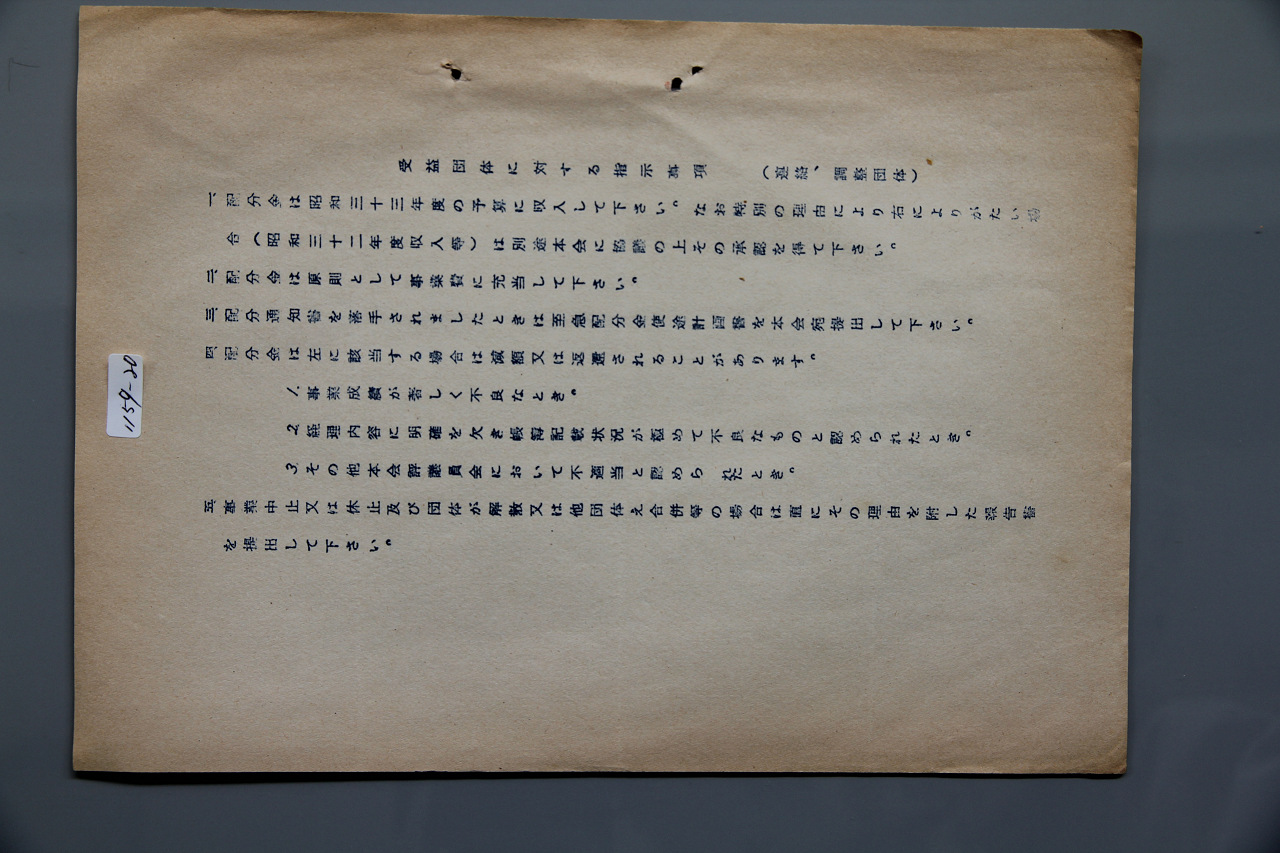 受益団体に対する指示事項　（連絡、調整団体）
一、配分金は昭和三十三年度の予算に収入して下さい。なお特別の理由により右によりがたい場
合（昭和三十二年度収入等）は別途本会に協議の上その承認を得て下さい。
二、配分金は原則として事業費に充当して下さい。
三、配分通知書を落手されましたときは至急配分金使途計画書を本会宛提出して下さい。
四、配分金は左に該当する場合は減額又は返還されることがあります。
1. 事業成績が著しく不良なとき。
2. 経理内容に明確を欠き帳簿記載状況が極めて不良なものと認められたとき。
3. その他本会評議員会において不適当と認められたとき。
五、事業中止又は休止及び団体が解散又は他団体え合併等の場合は直にその理由を附した報告書
を提出して下さい。
1159-20